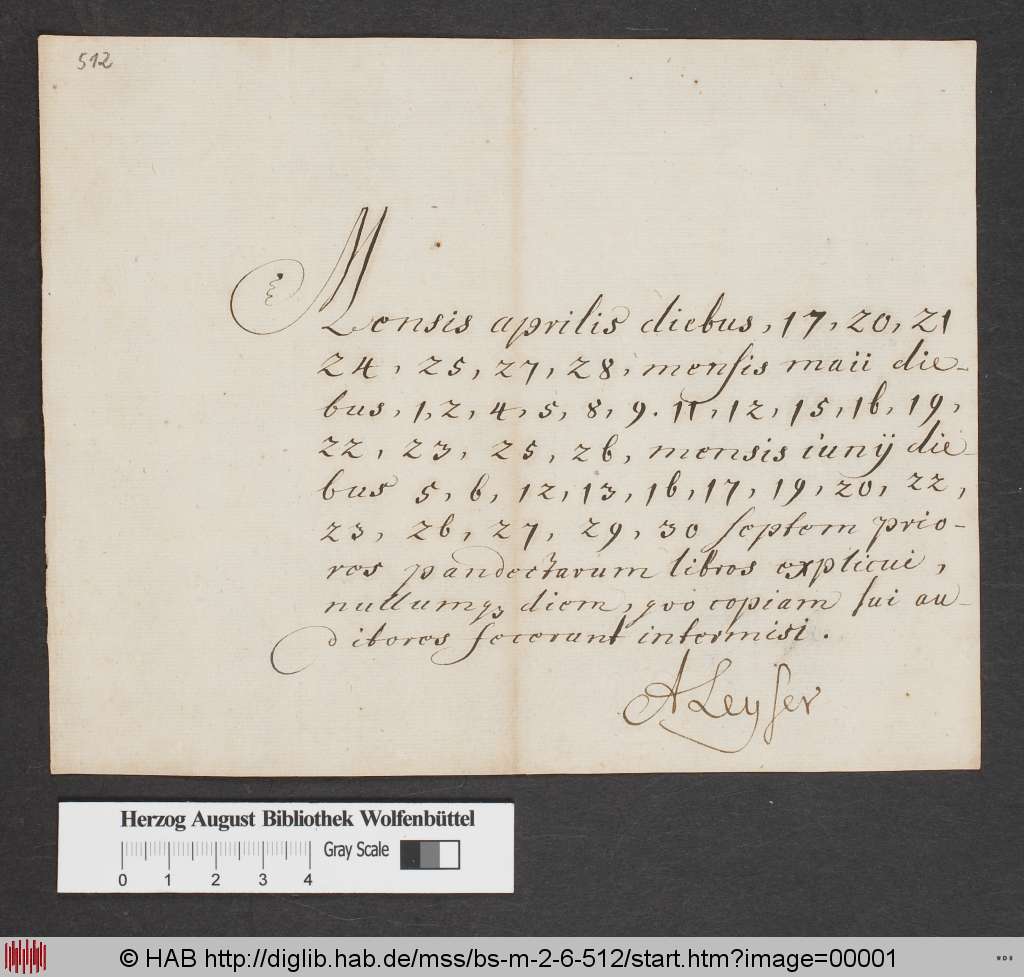 512
Mensis aprilis diebus, 17, 20, 21
24, 25, 27, 28, mensis maii die-
bus, 1, 2, 4, 5, 8, 9. 11, 12, 15, 16, 19,
22, 23, 25, 26, mensis iunij die-
bus 5, 6, 12, 13, 16, 17, 19, 20, 22,
23, 26, 27, 29, 30 septem prio-
res pandectarum libros explicui,
nullumqz diem, qvo copiam sui au-
ditores fecerant intermisi.
ALeyser
Herzog August Bibliothek Wolfenbüttel
Gray Scale
0 1 2 3 4
© HAB http://diglib.hab.de/mss/bs-m-2-6-512/start.htm?image=00001
WDB